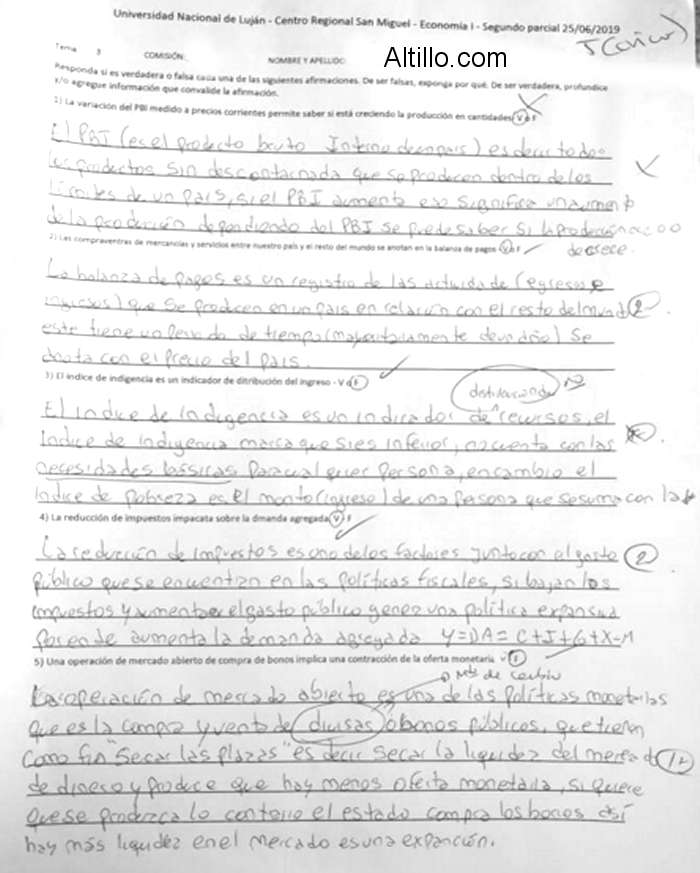 Universidad Nacional de Luján - Centro Regional San Miguel - Economía I - Segundo parcial 25/06/2019
5 (cinco)
Tema 3 COMISIÓN: NOMBRE Y APELLIDO: Altillo.com
Responda si es verdadera o falsa cada una de las siguientes afirmaciones. De ser falsas, exponga por qué. De ser verdadera, profundice
y/o agregue información que convalide la afirmación.
1) La variación del PBI medido a precios corrientes permite saber si está creciendo la producción en cantidades V o F
El PBI (es el producto bruto Interno de un pais) es decir todos
los productos sin descontar nada que se producen dentro de los
límites de un país, si el PBI aumenta eso significa un aumento
de la producción dependiendo del PBI se puede saber si la producción crece o
decrece.
2) Las compraventas de mercancías y servicios entre nuestro país y el resto del mundo se anotan en la balanza de pagos V o F
La balanza de pagos es un registro de las (egresos e
ingresos) que se producen en un país en relación con el resto del mundo 2
este tiene un de tiempo (mayoritariamente de un año) Se
con el precio del país.
3) El índice de indigencia es un indicador de ditribución del ingreso - V o F
El indice de indigencia es un indicador de recursos, el
Indice de indigencia marca que si es inferior, no cuenta con las
necesidades bassicas para cualquier persona, en cambio el
indice de pobreza es el monto (ingreso) de una persona que se suma con la
4) La reducción de impuestos impacata sobre la dmanda agregada V o F
La reducción de impuestos es uno de los factores junto con el gasto 2
público que se encuentran en las políticas fiscales, si bajan los
impuestos y aumentan el gasto público genera una política expansiva
por ende aumenta la demanda agregada Y=DA= C+I+G+X-M
5) Una operación de mercado abierto de compra de bonos implica una contracción de la oferta monetaria V o F
de cambio
La operación de mercado abierto es una de las políticas monetarias
que es la compra y venta de divisas o bonos públicos, que tienen
como fin "secar las plazas" es decir secar la liquidez del mercado
de dinero y produce que hay menos oferta monetaria, si quiere
que se produzca lo contrario el estado compra los bonos así
hay más liquidez en el mercado es una expanción.